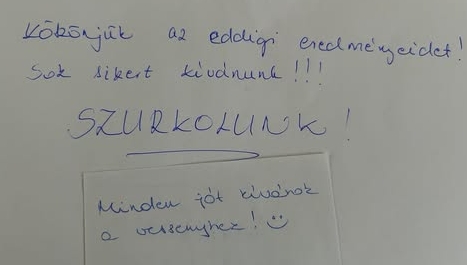 Köszönjük az eddigi eredményeidet!
Sok sikert kívánunk!!!
SZURKOLUNK!
Minden jót kívánok
a versenyhez! :)